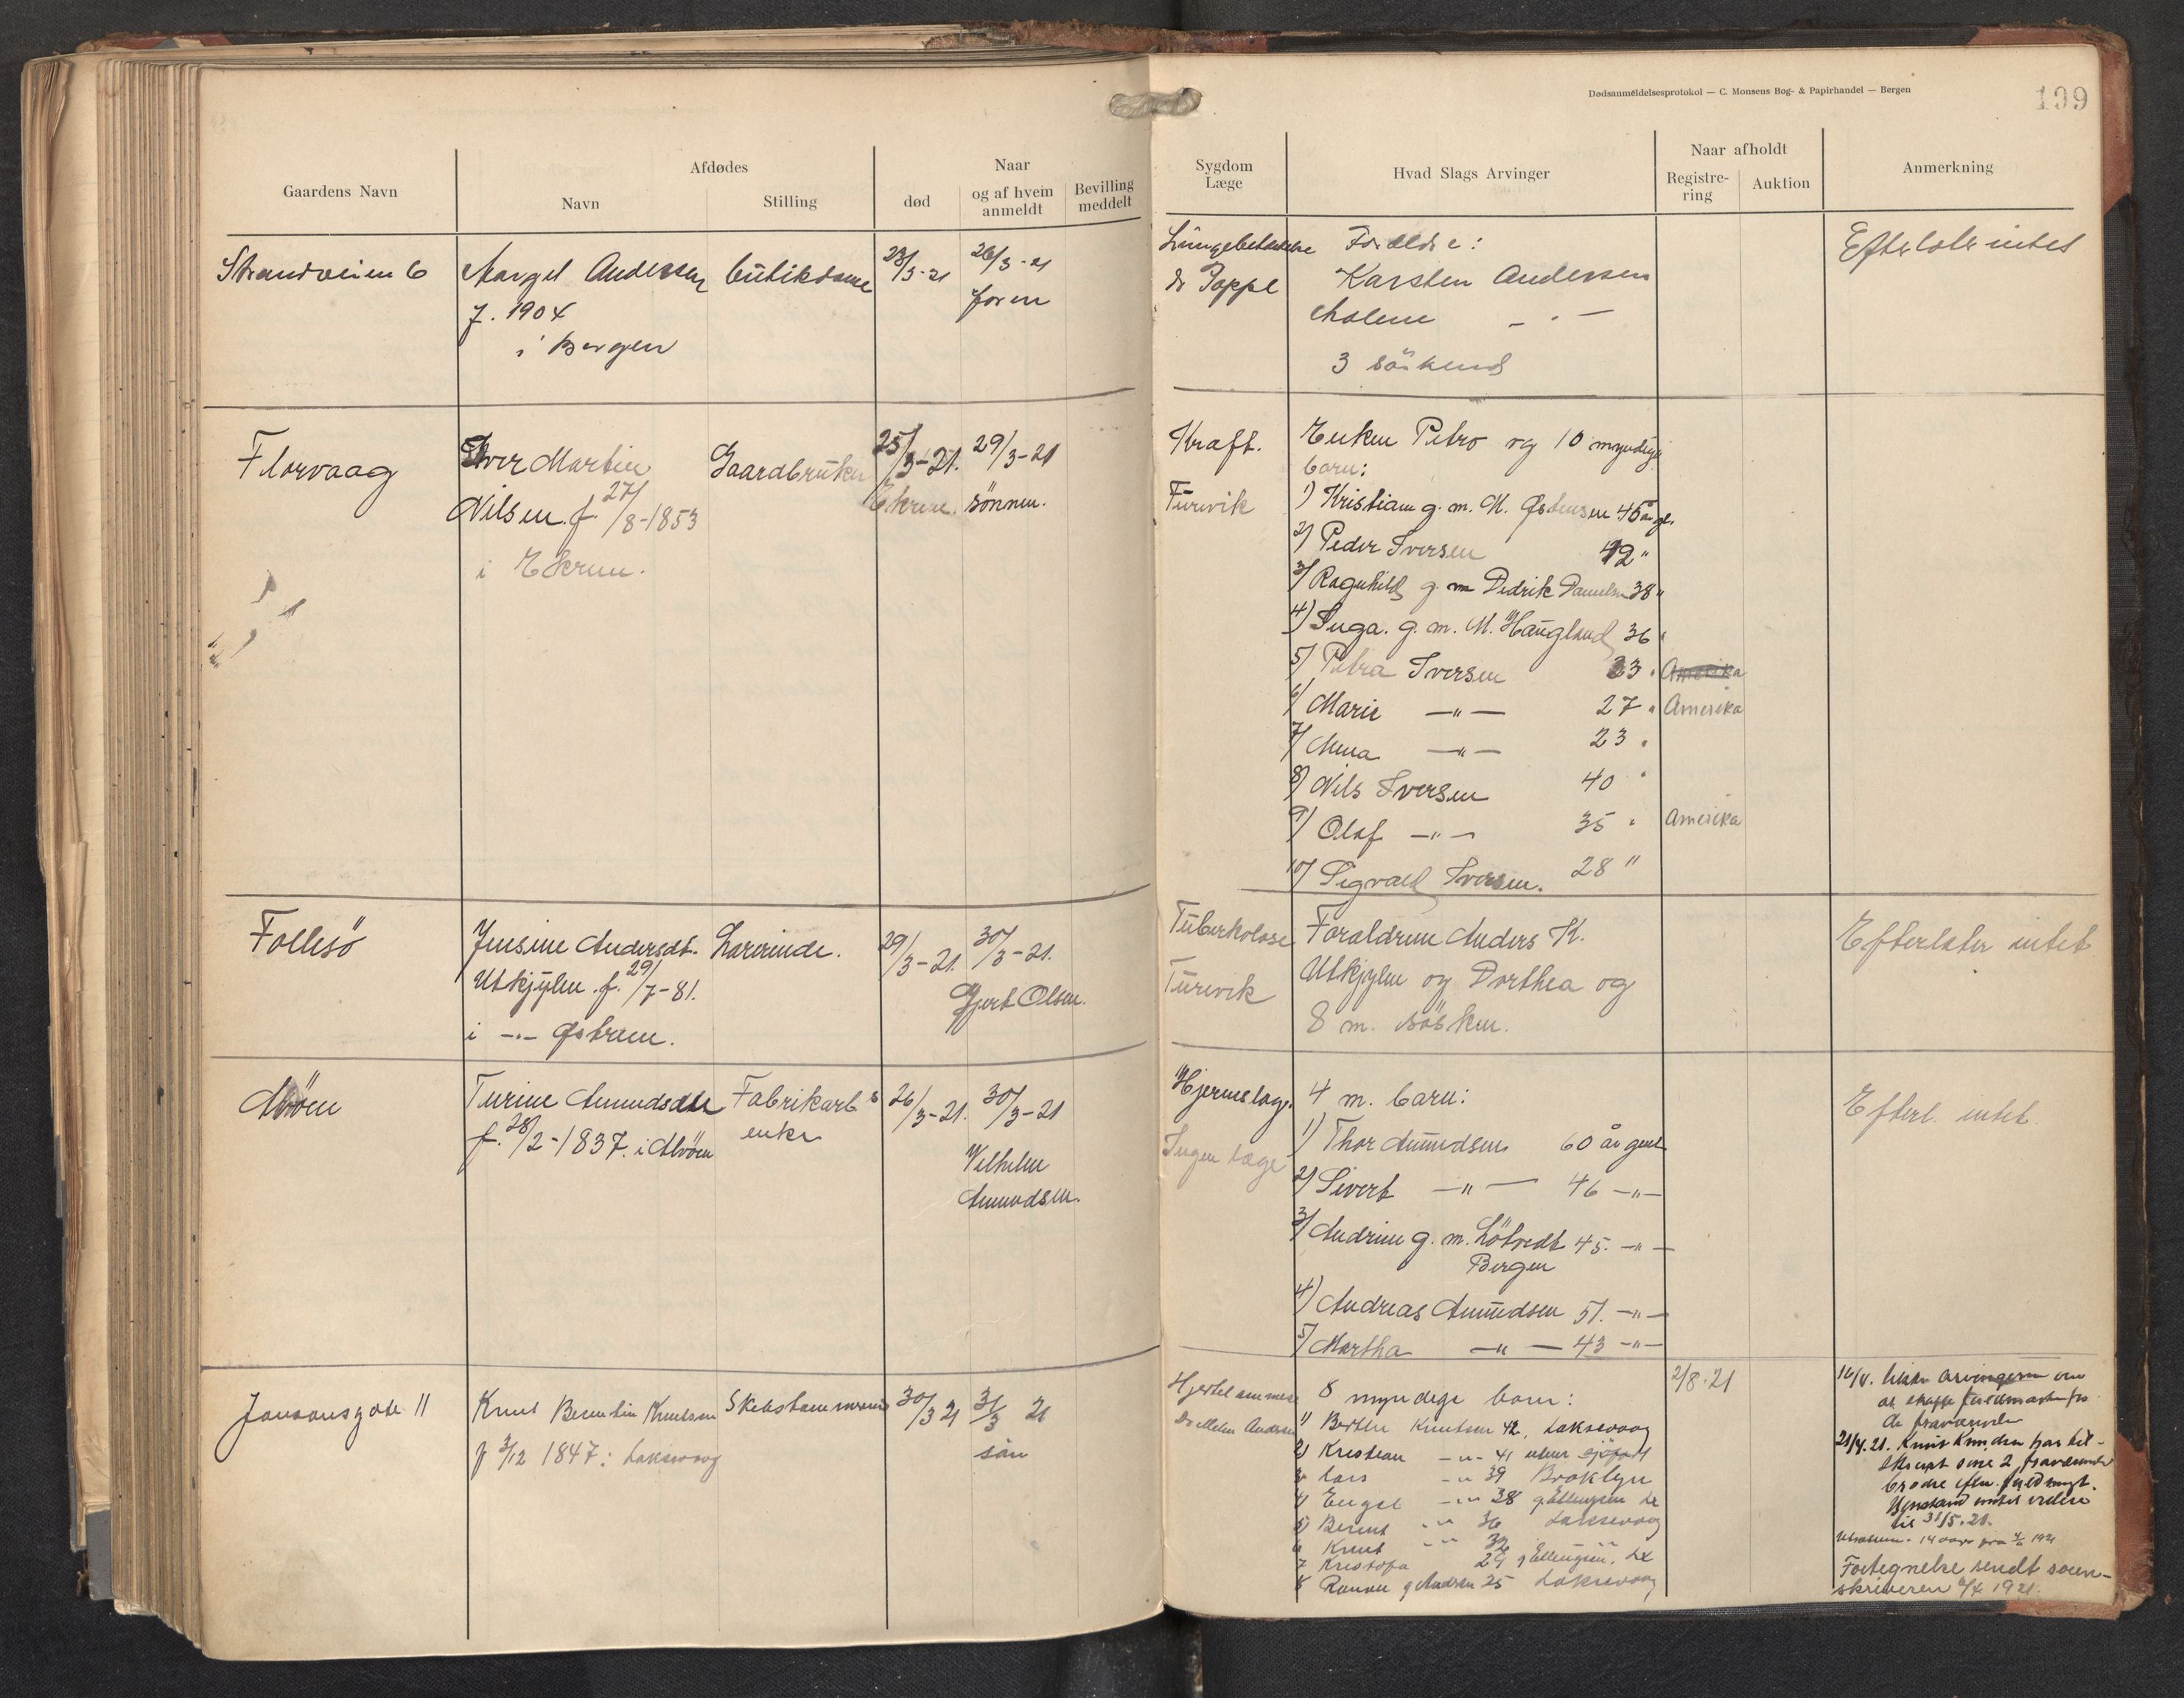 Dødsanmeldelsesprotokol — C. Monsens Bog- & Papirhandel — Bergen
199
Gaardens Navn
Afdødes
Navn
Stilling
Naar
død
og af hvem anmeldt
Bevilling meddelt
Sygdom Læge
Hvad Slags Arvinger
Naar afholdt
Registrering
Auktion
Anmerkning
Strandveien 6
Margit Andersen
f. 1904
i Bergen
butikdame
23/3-21
26/3-21
faren
Lungebetændelse
dr Poppe
Forældre:
Karsten Andersen
Malene — " —
3 söskend
Efterlater intet
Florvaag
Iver Martin
Nilsen f. 27/8-1853
i Ekren.
Gaardbruker
25/3-21.
Ekren.
29/3-21
sönnen.
Kraft.
Turvik
Enken Petro og 10 myndige
barn:
1) Kristiane g. m. M. Østensen 45 år gl.
2) Peder Iversen 42 "
3) Ragnhild g. m. Didrik Danielsen 38 "
4) Inga. g. m. M. Haugland 36 "
5) Petra Iversen 33 " Amerika
6) Marie — " — 27 " Amerika
7) Mina — " — 23 "
8) Nils Iversen 40 "
9) Olaf — " — 35 " Amerika
10) Sigvald Iversen. 28 "
Follesö
Jensine Andersdt.
Utkjylen f. 29/7-81.
i — " — Østrem.
Lærerinde.
29/3-21.
30/3-21.
Gjert Olsen.
Tuberkolose
Turvik
Forældrene Anders K.
Utkjylen og Dorthea og
8 m. søsken.
Efterlater intet
Alvöen
Turine Amundsdtr
f. 28/2-1837. i Alvöen
Fabrikarb s
enke
26/3-21.
30/3-21
Vilhelm
Amundsen.
Hjerneslag.
Ingen læge
4 m. barn:
1) Thor Amundsen 60 år gml
2) Sivert — " — 46 — " —
3) Andrine g. m. Lötvedt 45. — " —
Bergen
4) Andreas Amundsen 51. — " —
5) Martha — " — 43 — " —
Efterl. intet
Jansonsgate 11
Knut Berntin Knutsen
f 3/12 1847 i Laksevaag
Skibstømmermand
30/3 21
31/3 21
sön
Hjertelammelse
Dr Andersen
8 myndige barn:
1) Berthe Knutsen 42, Laksevaag
2) Kristian — " — 41 sjöfart
3 Lars — " 39 Broklyn
4) Engel — " 38 g Ellingsen Lx
5) Bernt " 36 Laksevaag
6 Knut — " 32 "
7 Kristofa 29 g Ellingsen. Lx
8 g Andersen 25 Laksevaag
2/8-21
arvingerne om
at skaffe fuldmagt fra
de fraværende
21/4.21. Knut Knudsen har
sine 2 fraværende
brødre fuldmagt.
til 31/5.21.
1921
Fortegnelse sendt sorenskriveren 1921.